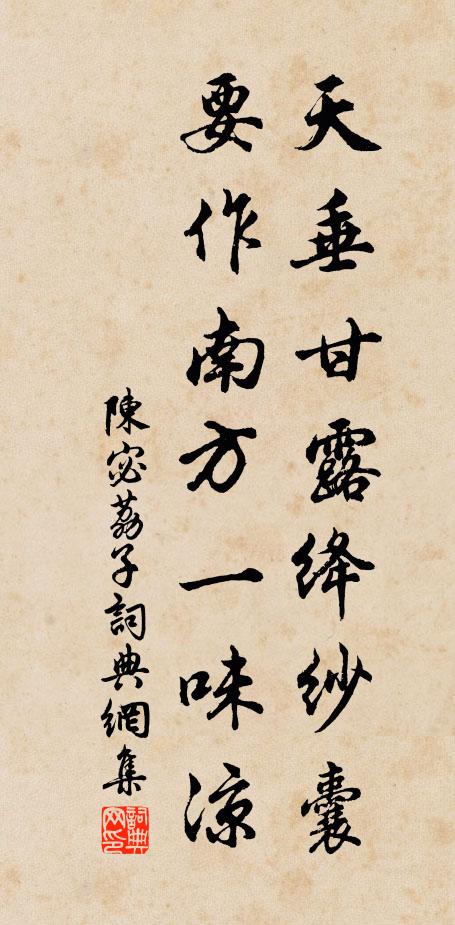 天垂甘露絳紗囊
要作南方一味涼
陳宓荔子詞典網集
詞典网印